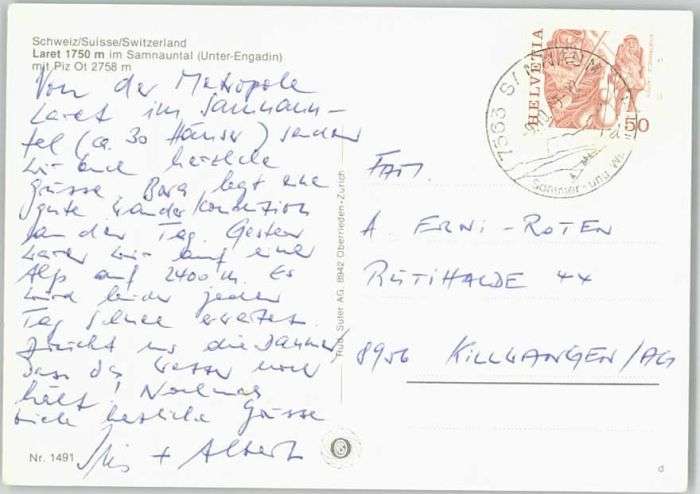 Schweiz/Suisse/Switzerland
Laret 1750 m im Samnauntal (Unter-Engadin)
mit Piz Ot 2758 m
Von der Metropole
Laret im Samnaun-
tal (ca. 30 Häuser) senden
wir euch herzliche
Grüsse. Bara legt eine
gute Wanderkondition
an den Tag. Gestern
waren wir auf einer
Alp auf 2400 m. Es
wird leider jeden
Tag Schnee erwartet.
uns die Daumen,
dass das Wetter noch
hält! Nochmals
viele herzliche Grüsse
Iris + Albert
Nr. 1491
Rud. Suter AG, 8942 Oberrieden-Zürich
HELVETIA
50
7563 SAMNAUN
Sommer- und
FAM.
A. ERNI-ROTEN
RÜTIHALDE 44
8956 KILLWANGEN/AG
d